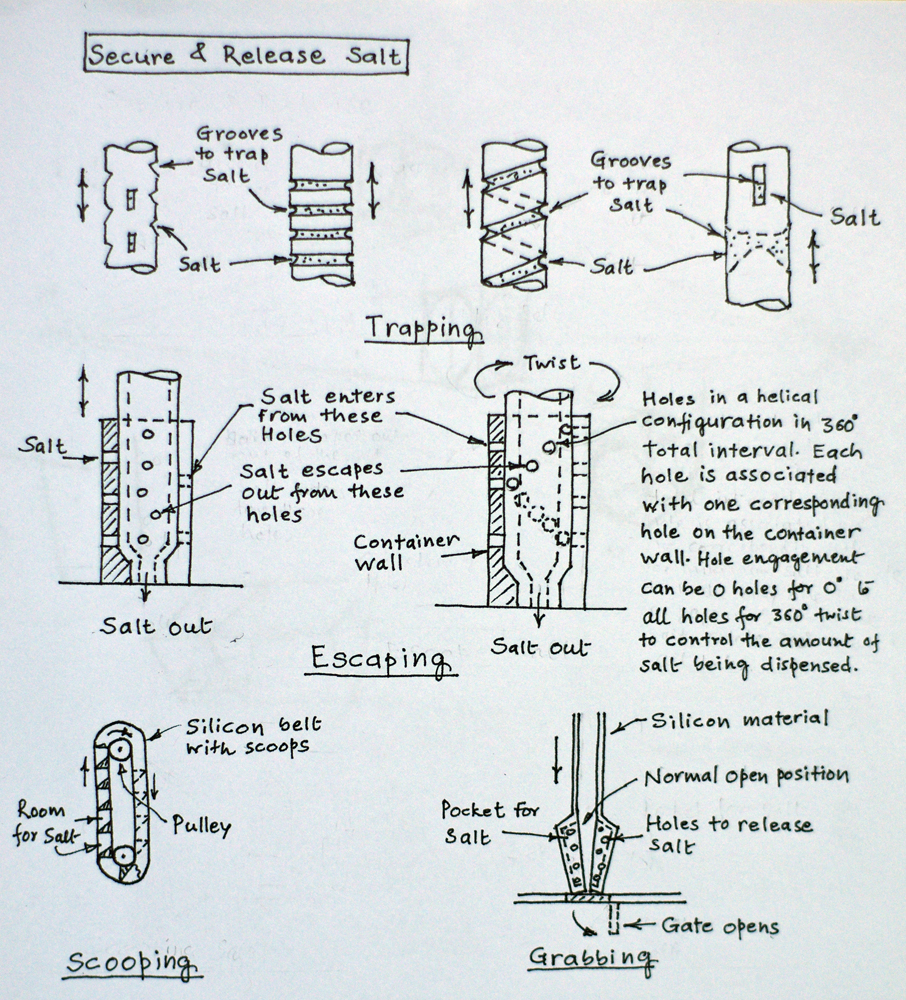 Secure & Release Salt
Grooves
to trap
Salt
Salt
Grooves
to trap
Salt
Salt
Salt
Trapping
Salt
Salt enters
from these
Holes
Salt escapes
out from these
holes
Salt out
Twist
Container
wall
Salt out
Holes in a helical
configuration in 360°
Total interval. Each
hole is associated
with one corresponding
hole on the container
wall. Hole engagement
can be 0 holes for 0° to
all holes for 360° twist
to control the amount of
salt being dispensed.
Escaping
Silicon belt
with scoops
Room
for Salt
Pulley
Scooping
Silicon material
Normal open position
Pocket for
Salt
Holes to release
Salt
Gate opens
Grabbing